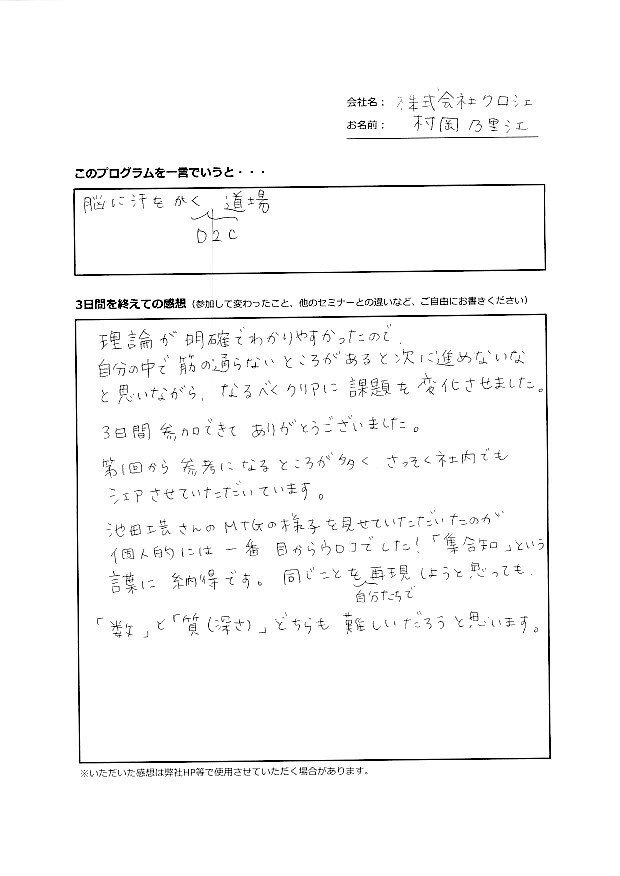 会社名： 株式会社クロシェ
お名前： 村岡 乃里江
このプログラムを一言でいうと・・・
脳に汗をかく 道場
D2C
3日間を終えての感想（参加して変わったこと、他のセミナーとの違いなど、ご自由にお書きください）
理論が明確でわかりやすかったので、
自分の中で筋の通らないところがあると次に進めないな
と思いながら、なるべくクリアに課題を変化させました。
3日間 参加できて ありがとうございました。
第1回から 参考になるところが多く さっそく社内でも
シェアさせていただいています。
池田工芸さんのMTGの様子を見せていただいたのが
個人的には一番目からウロコでした！「集合知」という
言葉に納得です。同じことを再現しようと思っても、
自分たちで
「数」と「質（深さ）」どちらも難しいだろうと思います。
※いただいた感想は弊社HP等で使用させていただく場合があります。